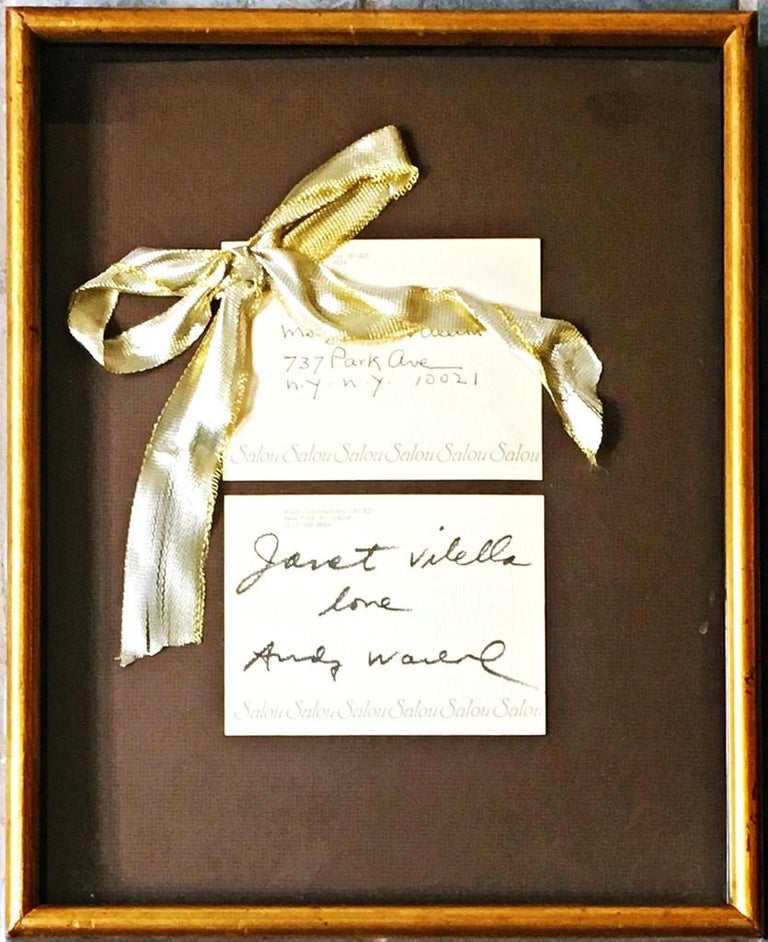 737 Park Ave
n.y. n.y. 10021
Salou Salou Salou Salou Salou Salou
Janet Vilella
love
Andy Warhol
Salou Salou Salou Salou Salou Salou